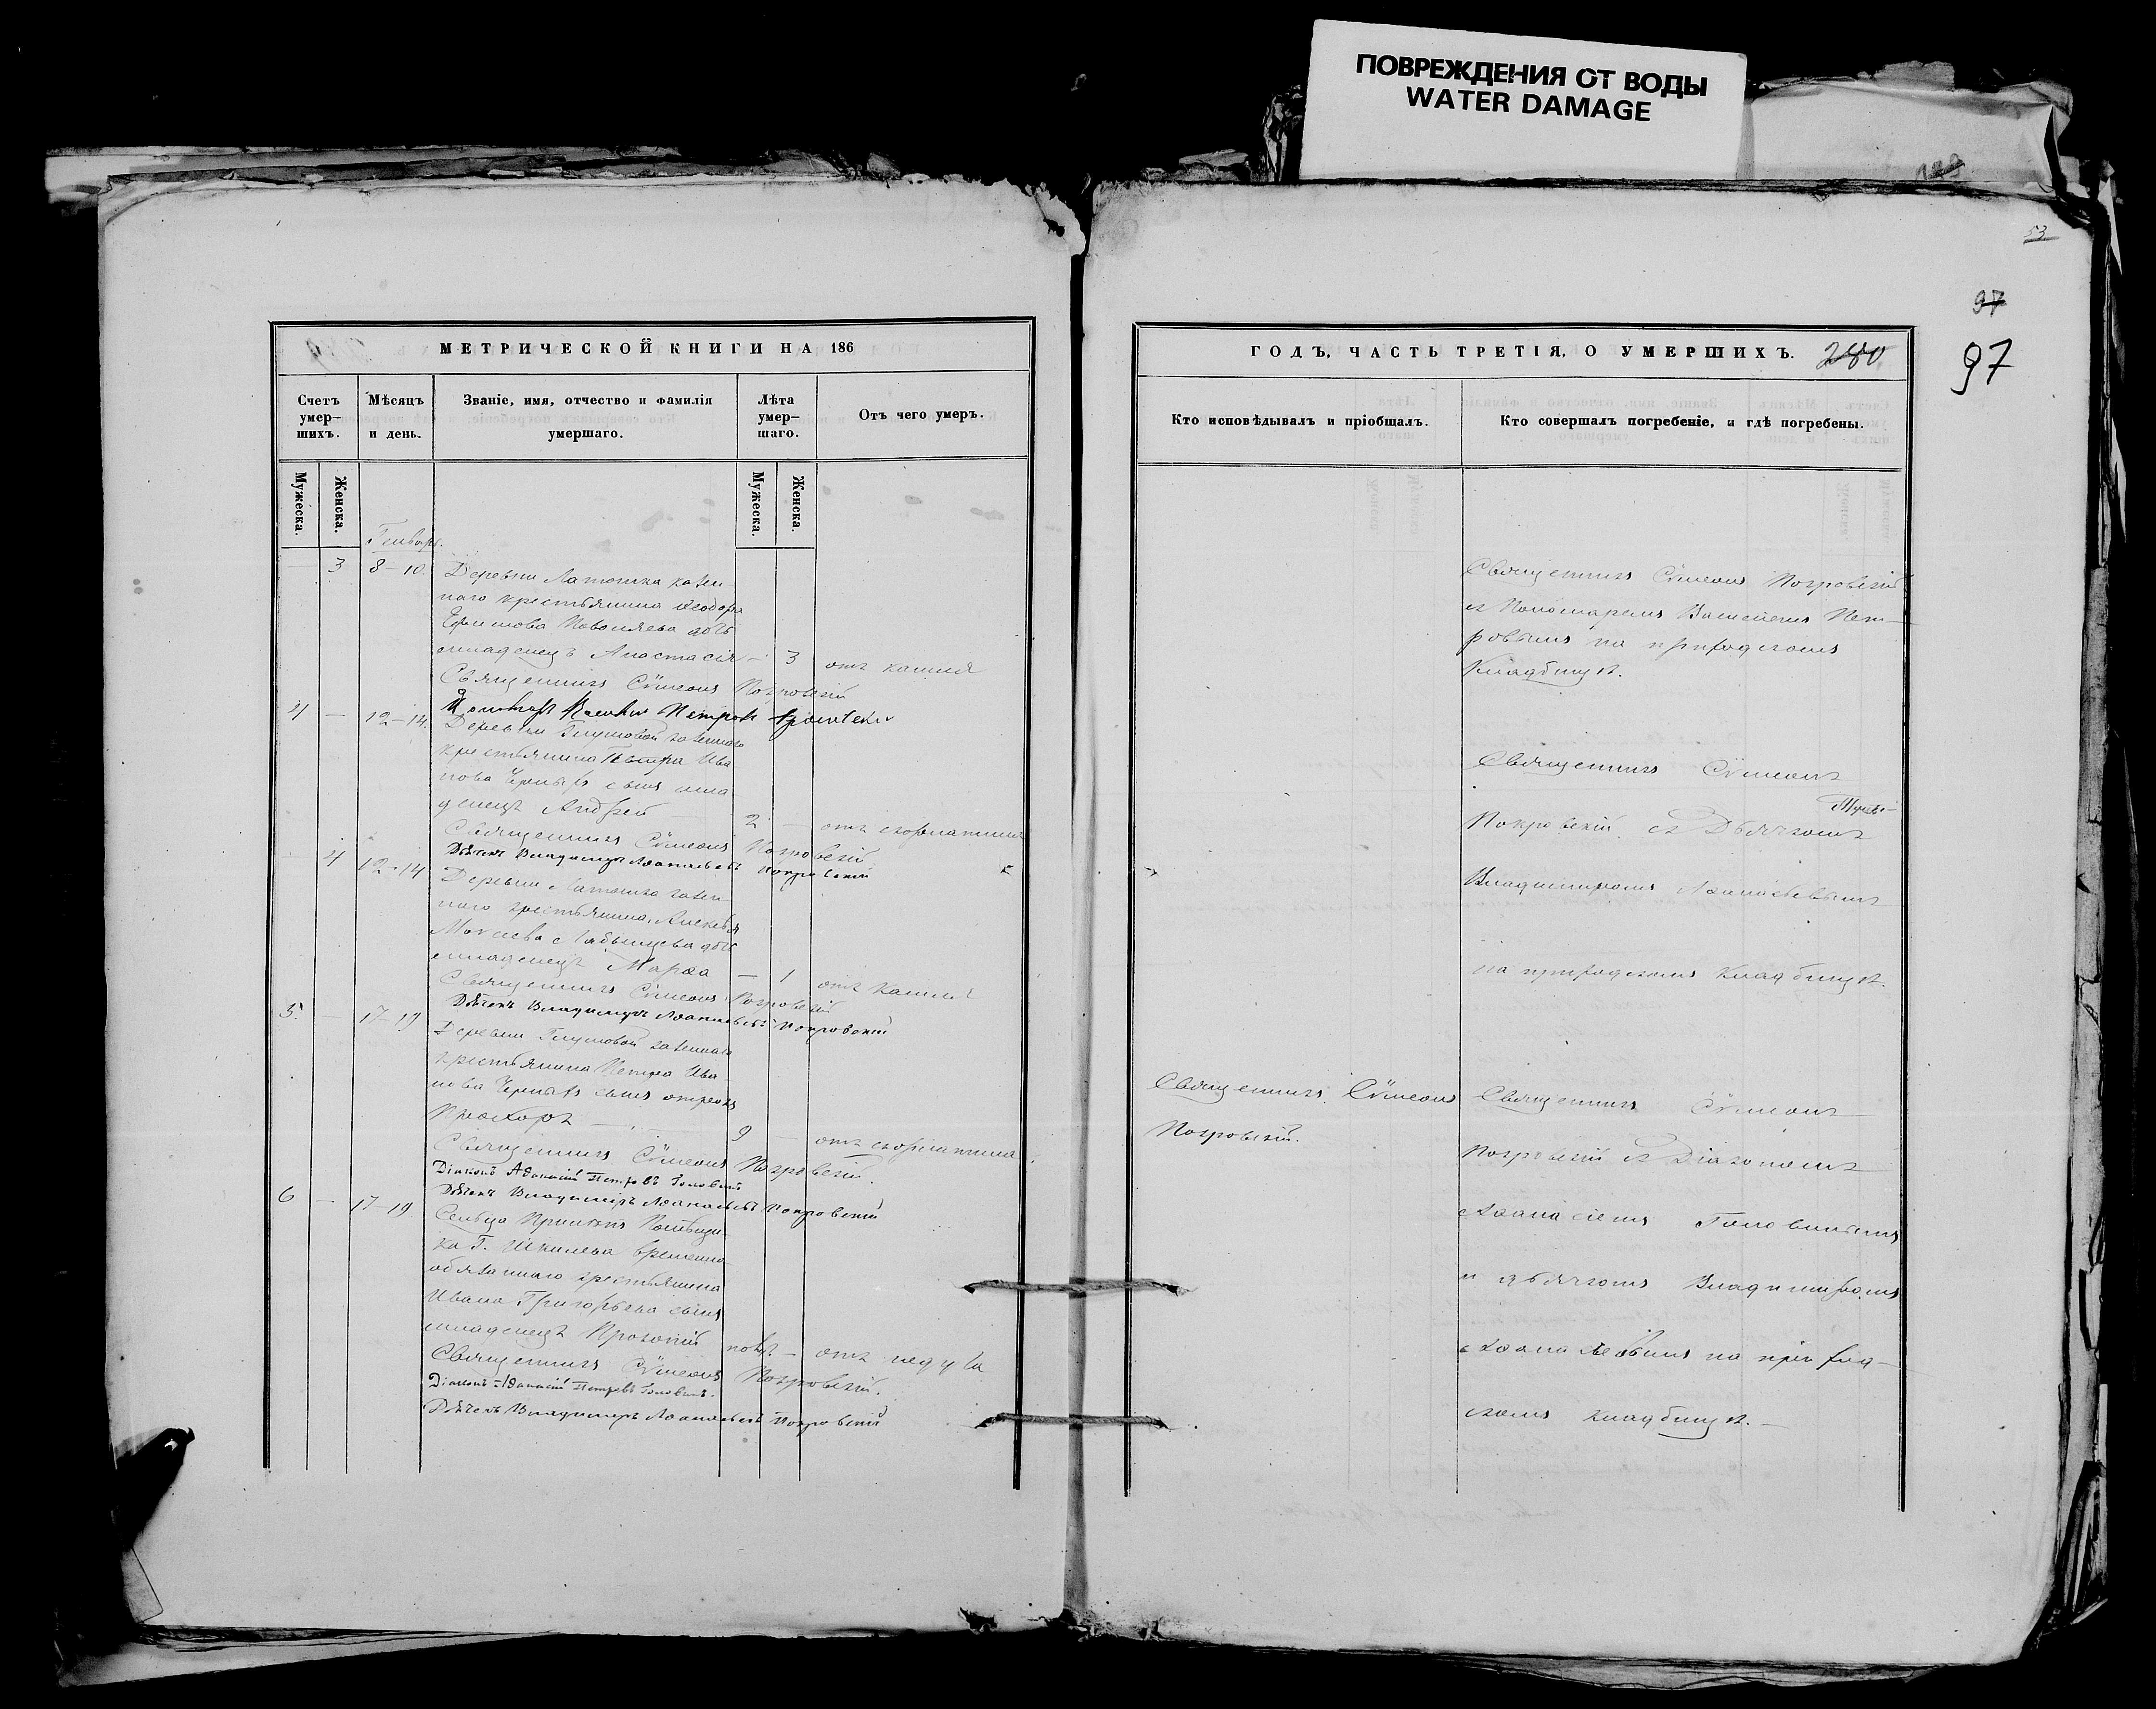 ПОВРЕЖДЕНИЯ ОТ ВОДЫ
WATER DAMAGE
53
97
97
МЕТРИЧЕСКОЙ КНИГИ НА 186
Счетъ умер-шихъ.
Мѣсяцъ и день.
Званіе, имя, отчество и фамилія умершаго.
Лѣта умер-шаго.
Отъ чего умеръ.
Мужеска.
Женска.
Мужеска.
Женска.
Генварь.
— 3 8–10. Деревни Латошка казен-
наго крестьянина Ѳеодора
Ефимова дочь
младенецъ Анастасія — 3 отъ кашля
Священникъ Сѵмеонъ Покровскій
Пономарь Василій Петровъ
4 — 12–14. Деревни Глушовой казеннаго
крестьянина Петра Ива-
нова сынъ мла-
денецъ Андрей 2 —
Священникъ Сѵмеонъ Покровскій.
Дьячекъ Владимиръ Аѳанасьевъ Покровскій
— 4 12–14 Деревни Латошка казен-
наго крестьянина Алексѣя
Моисеева дочь
младенецъ Марѳа — 1 отъ кашля
Священникъ Сѵмеонъ Покровскій
Дьячекъ Владимиръ Аѳанасьевъ Покровскій
5. — 17–19 Деревни Глушовой казеннаго
крестьянина Петра Ива-
нова сынъ отрокъ
Прохоръ — 9 —
Священникъ Сѵмеонъ Покровскій.
Діаконъ Аѳанасій Петровъ Головинъ
Дьячекъ Владимиръ Аѳанасьевъ Покровскій
6 — 17–19 Сельца
ка Г. временно-
обязаннаго крестьянина
Ивана Григорьева сынъ
младенецъ Прокопій — отъ недуга
Священникъ Сѵмеонъ Покровскій.
Діаконъ Аѳанасій Петровъ Головинъ.
Дьячекъ Владимиръ Аѳанасьевъ Покровскій
ГОДЪ, ЧАСТЬ ТРЕТІЯ, О УМЕРШИХЪ. 280
Кто исповѣдывалъ и пріобщалъ.
Кто совершалъ погребеніе, и гдѣ погребены.
Священникъ Сѵмеонъ Покровскій
съ Пономаремъ Василіемъ Пет-
ровымъ на приходскомъ
Кладбищѣ.
Священникъ Сѵмеонъ
Покровскій съ Дьячкомъ
Владимиромъ Аѳанасьевымъ
на приходскомъ кладбищѣ.
Священникъ Сѵмеонъ
Покровскій.
Священникъ Сѵмеонъ
Покровскій съ Діакономъ
Аѳанасіемъ Головинымъ
и дьячкомъ Владимиромъ
Аѳанасьевымъ на приход-
скомъ кладбищѣ. —